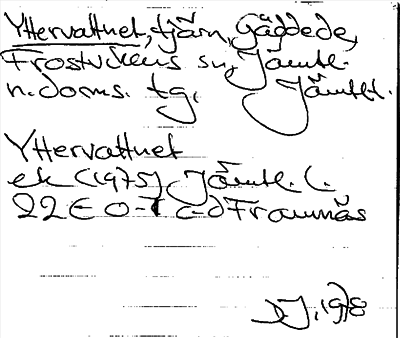 Yttervattnet, tjärn, Gäddede,
Frostvikens sn, Jämtl.
n. doms. tg, Jämtl.
Yttervattnet
ek (1975) Jämtl. l.
22E 0-1 c-d Framnäs
DJ, 1978